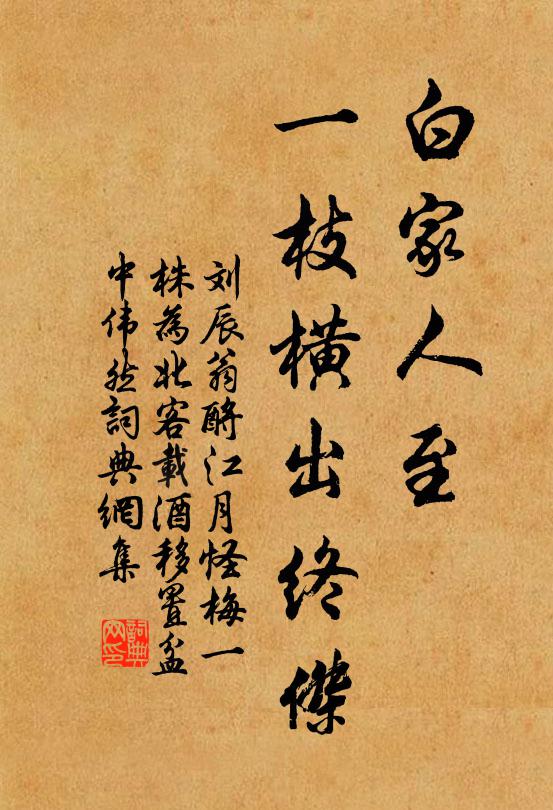 白家人至
一枝橫出终傑
刘辰翁酹江月怪梅一
株為北客載酒移置盆
中伟然詞典網集
詞典网印